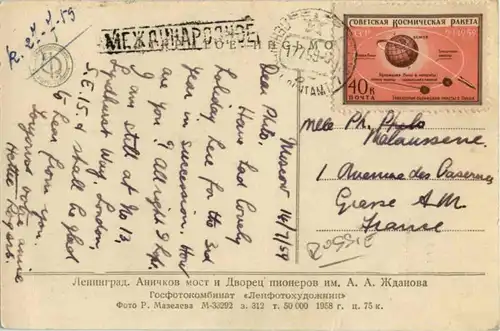 R. 27-7-59
МЕЖДУНАРОДНОЕ
СОВЕТСКАЯ КОСМИЧЕСКАЯ РАКЕТА
СССР
2-I-1959
ЗЕМЛЯ
40 К
ПОЧТА
Moscow 16/7/59
Dear Philo,
Have had lovely
holiday here for the 3rd
year in succession. How
are you? All right I hope.
I am still at No 13
Lyndhurst Way, London
S.E.15. & shall be glad
to hear from you.
Hattie Rogers.
Mlle Ph. Philo
Malaussene
1 Avenue des Casernes
Grasse A.M
France
Ленинград. Аничков мост и Дворец пионеров им. А. А. Жданова
Госфотокомбинат «Ленфотохудожник»
Фото Р. Мазелева М-33292 з. 312 т. 50 000 1958 г. ц. 75 к.